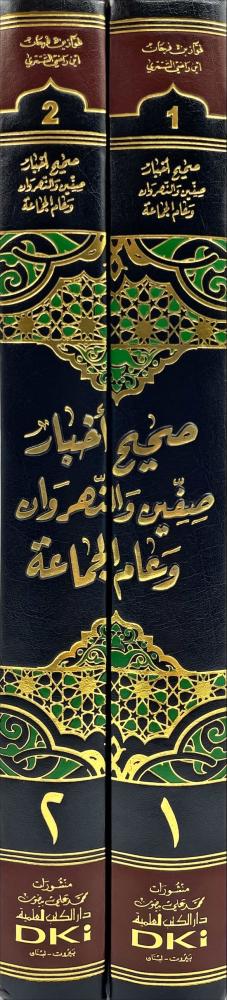 فواز بن فرحان
ابن راضي الشمري
1
صحيح أخبار
صفين والنهروان
وعام الجماعة
فواز بن فرحان
ابن راضي الشمري
2
صحيح أخبار
صفين والنهروان
وعام الجماعة
صحيح أخبار
صفين والنهروان
وعام الجماعة
١
منشورات
محمد علي بيضون
دار الكتب العلمية
DKi
بيروت - لبنان
٢
منشورات
محمد علي بيضون
دار الكتب العلمية
DKi
بيروت - لبنان